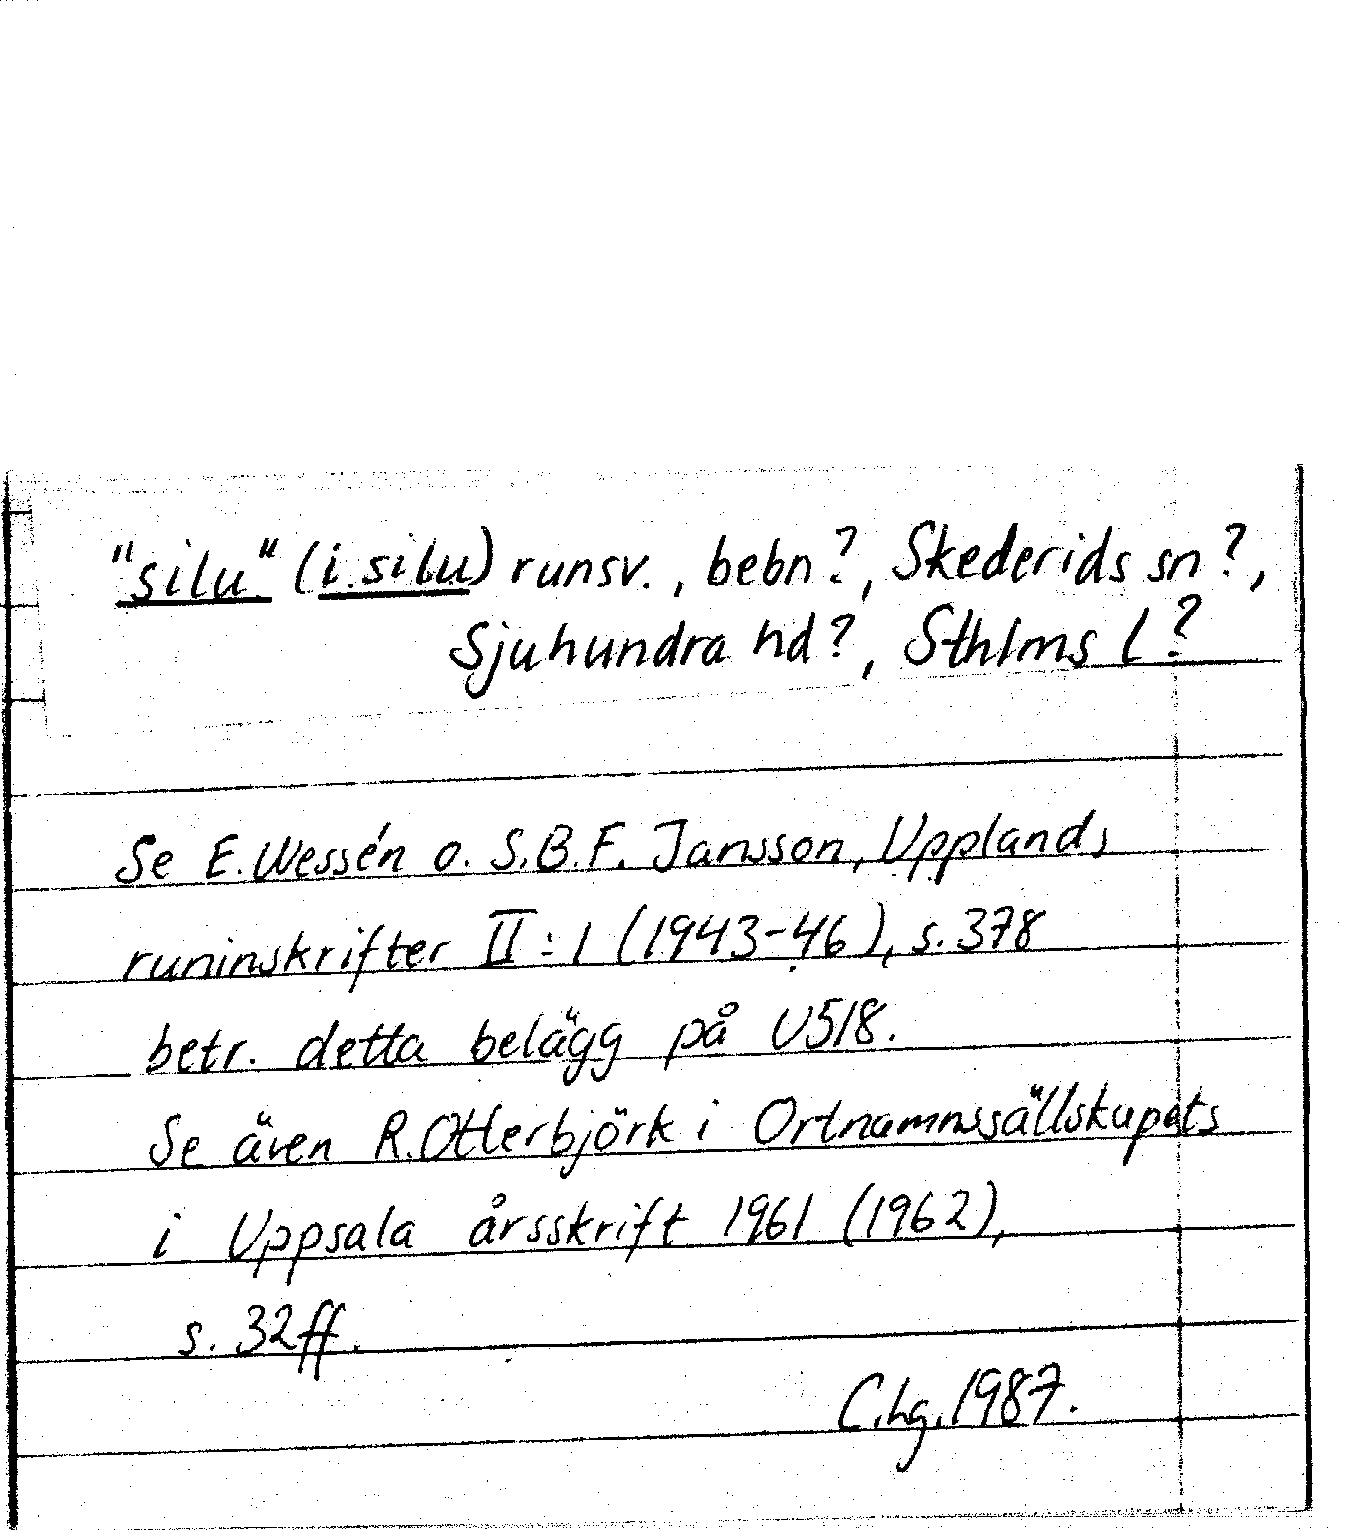 "silu" (i.silu) runsv., bebn?, Skederids sn?,
Sjuhundra hd?, Sthlms l?
Se E.Wessén o. S.B.F. Jansson, Upplands
runinskrifter II:1 (1943-46), s.378
betr. detta belägg på U518.
Se även R.Otterbjörk i Ortnamnssällskapets
i Uppsala årsskrift 1961 (1962),
s. 32ff.
C.hg.1987.